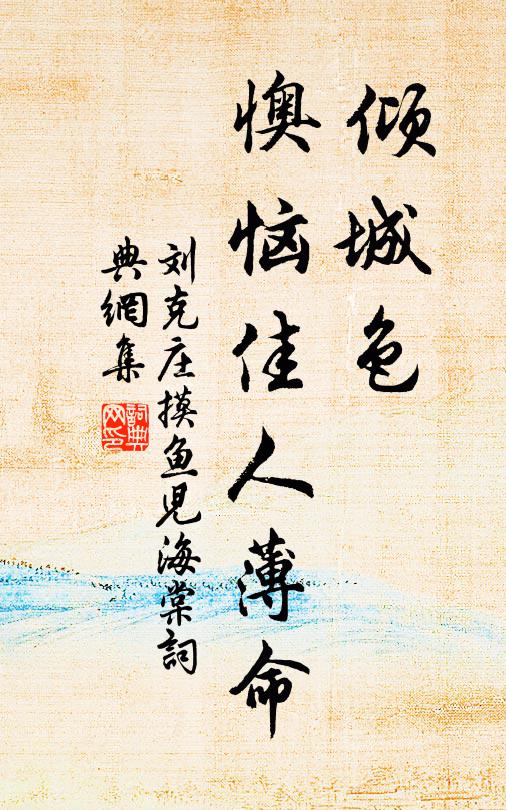 倾城色
懊恼佳人薄命
刘克庄摸鱼児海棠詞
典網集
詞典网印